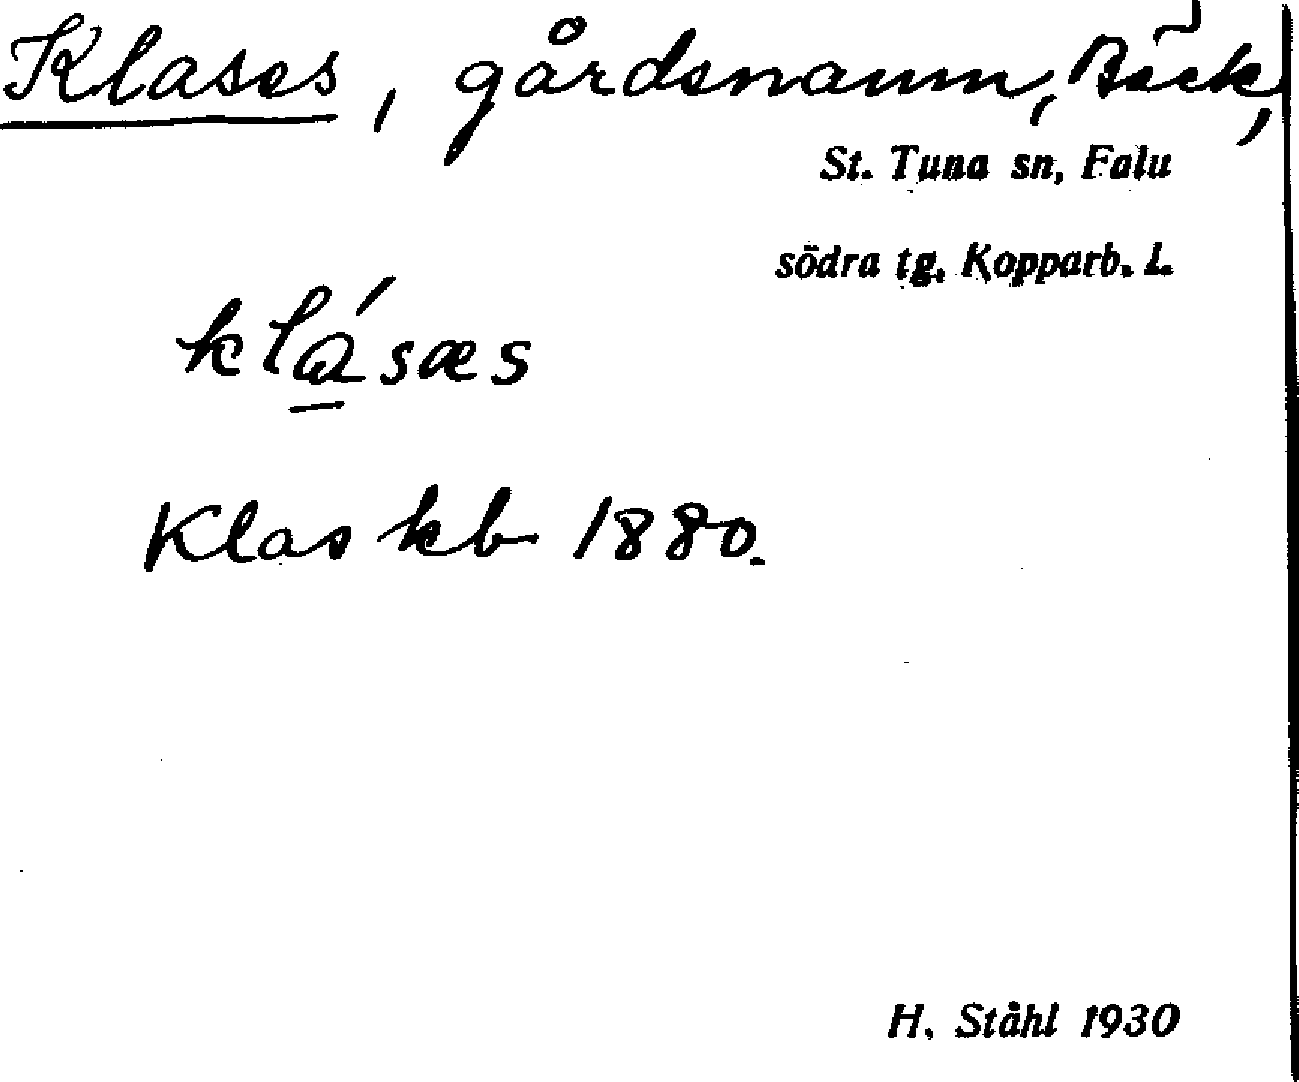 Klases, gårdsnamn, Bäck,
St. Tuna sn, Falu
södra tg, Kopparb. L.
klásæs
Klas kb 1880.
H. Ståhl 1930